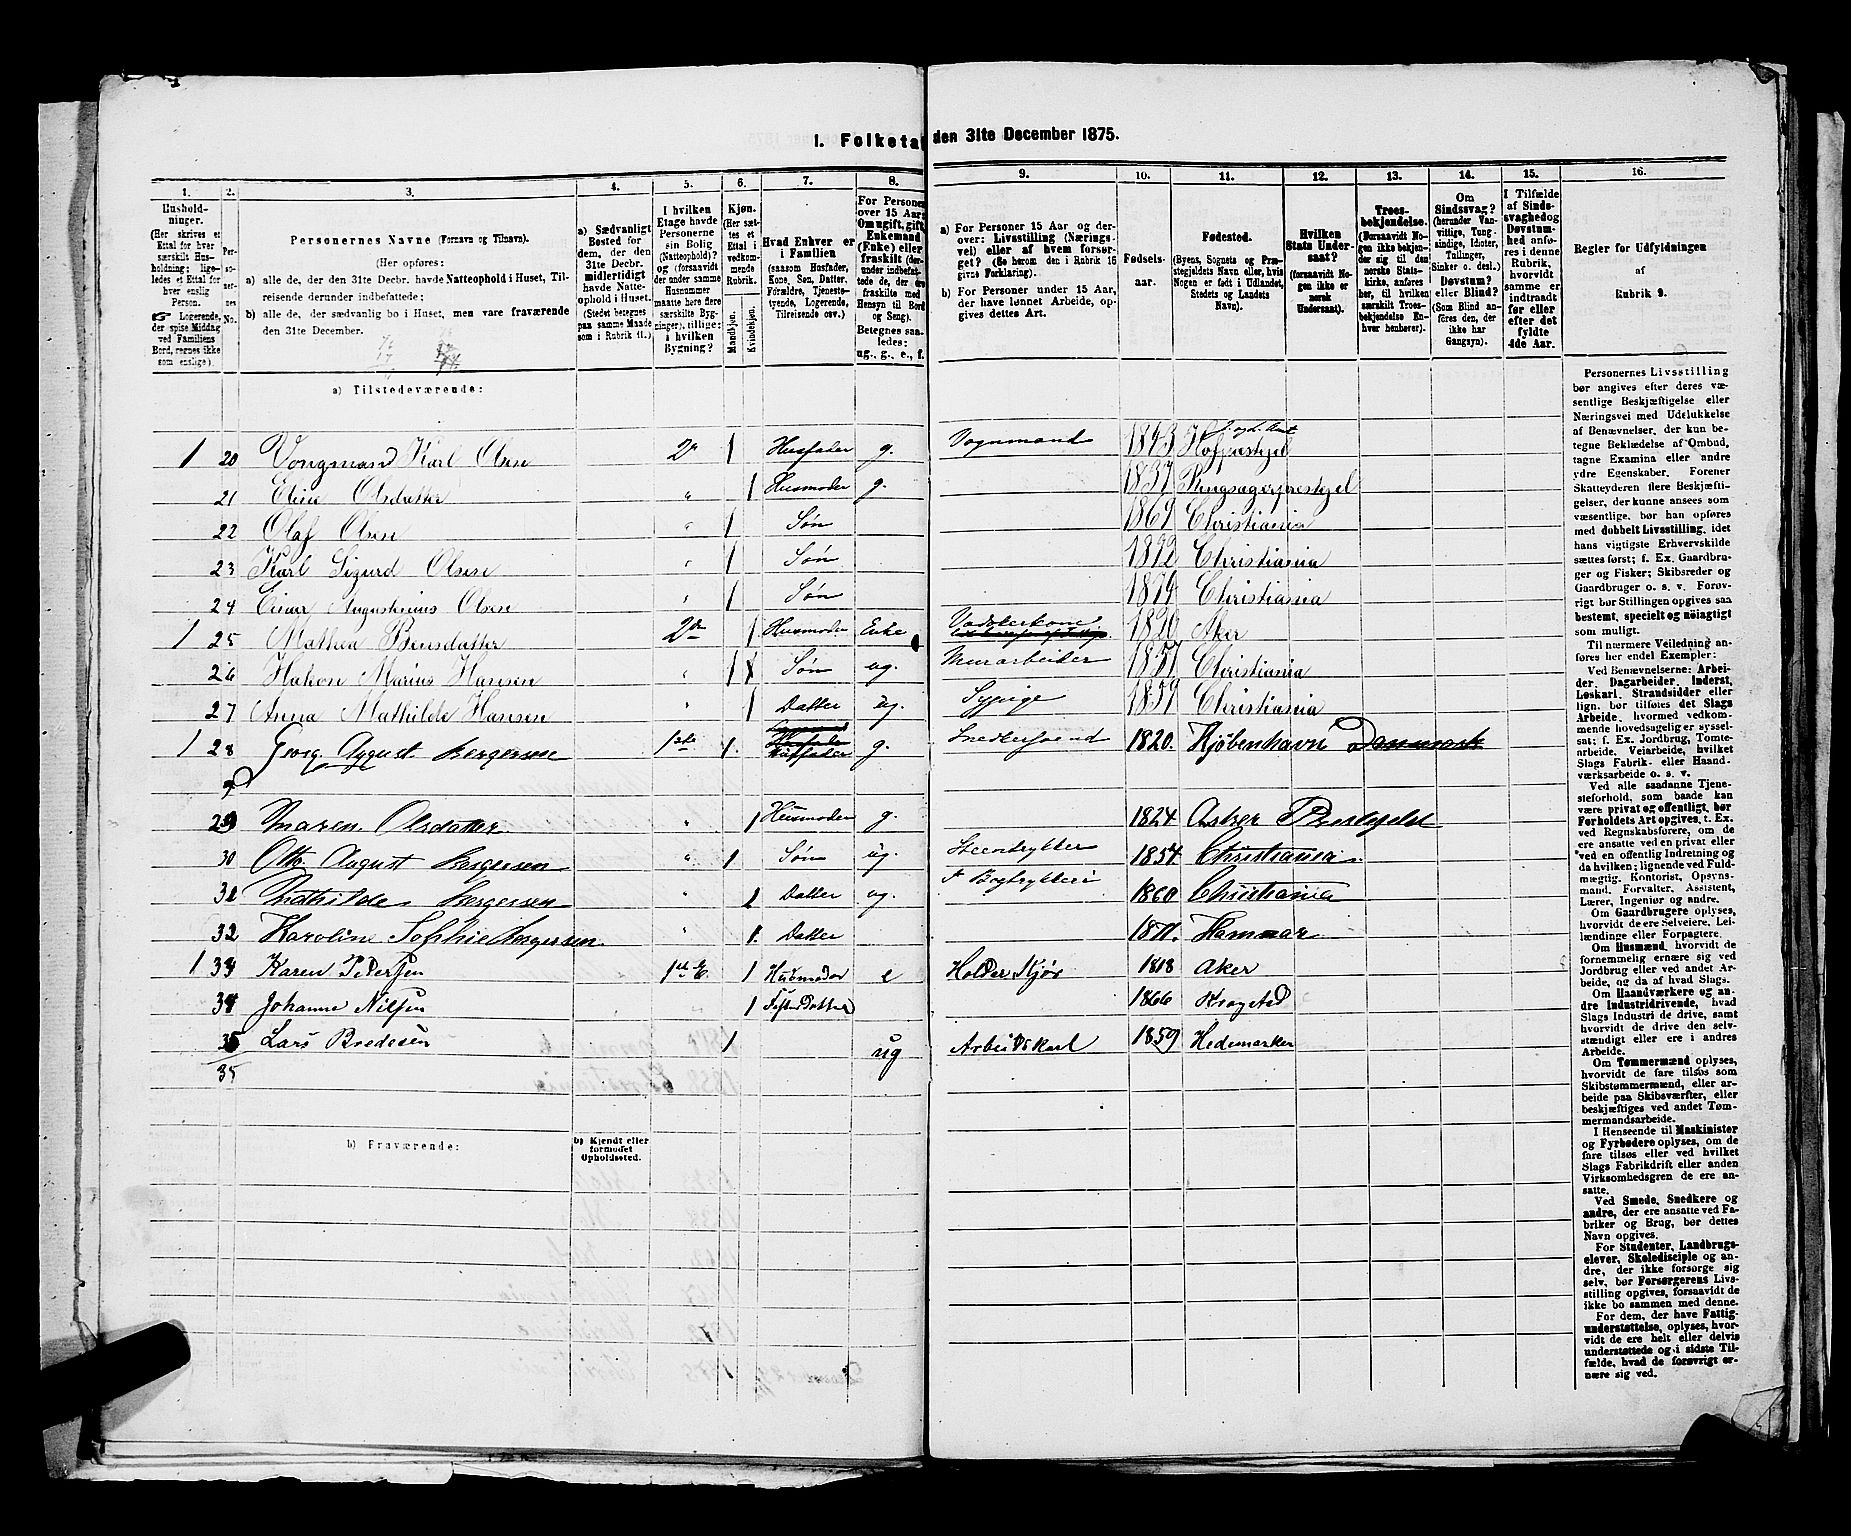 1. Folketal den 31te December 1875.
1. 2. 3. 4. 5. 6. 7. 8. 9. 10. 11. 12. 13. 14. 15. 16.
Husholdninger.
(Her skrives et Ettal for hver særskilt Husholdning; ligeledes et Ettal for hver enslig Person.
☞ Logerende, der spise Middag ved Familiens Bord, regnes ikke som enslige).
Personernes No.
Personernes Navne (Fornavn og Tilnavn).
(Her opføres:
a) alle de, der den 31te Decbr. havde Natteophold i Huset, Tilreisende derunder indbefattede;
b) alle de, der sædvanlig bo i Huset, men vare fraværende den 31te December.
a) Sædvanligt Bosted for dem, der den 31te Decbr. midlertidigt havde Natteophold i Huset.
(Stedet betegnes paa samme Maade som i Rubrik 11.)
I hvilken Etage havde Personerne sin Bolig (Natteophold)? og (forsaavidt der under samme Husnummer maatte høre flere særskilte Bygninger), tillige: i hvilken Bygning?
Kjøn.
(Her sættes et Ettal i vedkommende Rubrik.
Mandkjøn.
Kvindekjøn.
Hvad Enhver er i Familien
(saasom Husfader, Kone, Søn, Datter, Forældre, Tjenestetyende, Logerende, Tilreisende osv.)
For Personer over 15 Aar: Om ugift, gift, Enkemand (Enke) eller fraskilt
Betegnes saaledes:
ug., g., e., f.
a) For Personer 15 Aar og derover: Livsstilling (Næringsvei) eller af hvem forsørget? (Se herom den i Rubrik 16 givne Forklaring).
b) For Personer under 15 Aar, der have lønnet Arbeide, opgives dettes Art.
Fødselsaar.
Fødested.
(Byens, Sognets og Præstegjeldets Navn eller, hvis Nogen er født i Udlandet, Stedets og Landets Navn).
Hvilken Stats Undersaat?
(forsaavidt Nogen ikke er norsk Undersaat).
Troesbekjendelse.
(Forsaavidt Nogen ikke bekjender sig til den norske Statskirke, anføres her, til hvilken særskilt Troesbekjendelse Enhver henhører).
Om Sindssvag?
(herunder Vanvittige, Tungsindige, Idioter, Tullinger, Sinker o. desl.) Døvstum? eller Blind? (Som Blind anføres den, der ikke har Gangsyn).
I Tilfælde af Sindssvaghed og Døvstumhed anføres i denne Rubrik, hvorvidt samme er indtraadt før eller efter det fyldte 4de Aar.
Regler for Udfyldningen
af
Rubrik 9.
a) Tilstedeværende:
1 20 Vongmand Karl Olsen 2 1 Husfader g. Vognmand 1843 Hofpræstgjel
21 Eline Olsdatter " 1 Husmoder g. 1837 Ringsagerpræstgjel
22 Olaf Olsen " 1 Søn 1869 Christiania
23 Karl Sigurd Olsen " 1 Søn 1872 Christiania
24 Einar Augustinius Olsen " 1 Søn 1874 Christiania
1 25 Mathea Bensdatter 2 1 Husmoder Enke Vadskerkone 1820 Aker
26 Hakon Marius Hansen " 1 Søn ug. Murarbeider 1857 Christiania
27 Anna Mathilde Hansen " 1 Datter ug. Sypige 1859 Christiania
1 28 Georg August Bergersen 1ste 1. Husfader g. Snedkersvend 1820. Kjøbenhavn Danmark
29 Maren Olsdatter " 1 Husmoder g. 1824 Asker Prestegjeld
30 Otto August Bergersen " 1 Søn ug. Steentrykker 1854 Christiania
31 Mathilde Bergersen " 1 Datter ug. Bogtrykkeri 1860 Christiania
32 Karoline Sophie Bergersen " 1. Datter 1871. Hammar
1 33 Karen Petersen 1 E 1 Husmoder e 1818 Aker
34 Johanne Nilsen 1 1866 Krogsted
35 Lars Bredesen 1 ug Arbeidskarl 1859 Hedemarken
35
b) Fraværende:
b) Kjendt eller formodet Opholdssted.
Personernes Livsstilling bør angives efter deres væsentlige Beskjæftigelse eller Næringsvei med Udelukkelse af Benævnelser, der kun betegne Beklædelse af Ombud, tagne Examina eller andre ydre Egenskaber. Forener Skatteyderen flere Beskjæftigelser, der kunne ansees som væsentlige, bør han opføres med dobbelt Livsstilling, idet hans vigtigste Erhvervskilde sættes først; f. Ex. Gaardbruger og Fisker; Skibsreder og Gaardbruger o. s. v. Forøvrigt bør Stillingen opgives saa bestemt, specielt og nøiagtigt som muligt.
Til nærmere Veiledning anføres her endel Exempler:
Ved Benævnelserne: Arbeider, Dagarbeider, Inderst, Løskarl, Strandsidder eller lign. bør tilføies det Slags Arbeide, hvormed vedkommende hovedsagelig er sysselsat; f. Ex. Jordbrug, Tomtearbeide, Veiarbeide, hvilket Slags Fabrik- eller Haandværksarbeide o. s. v.
Ved alle saadanne Tjenesteforhold, som baade kan være privat og offentligt, bør Forholdets Art opgives, t. Ex. ved Regnskabsførere, om de ere ansatte ved en privat eller ved en offentlig Indretning og da hvilken; lignende ved Fuldmægtig, Kontorist, Opsynsmand, Forvalter, Assistent, Lærer, Ingeniør og andre.
Om Gaardbrugere oplyses, hvorvidt de ere Selveiere, Leilændinge eller Forpagtere.
Om Husmænd, hvorvidt de fornemmelig ernære sig ved Jordbrug eller ved andet Arbeide, og da af hvad Slags.
Om Haandværkere og andre Industridrivende, hvad Slags Industri de drive, samt hvorvidt de drive den selvstændigt eller ere i andres Arbeide.
Om Tømmermænd oplyses, hvorvidt de fare tilsøs som Skibstømmermænd, eller arbeide paa Skibsværfter, eller beskjæftiges ved andet Tømmermandsarbeide.
I Henseende til Maskinister og Fyrbødere oplyses, om de fare tilsøs eller ved hvilket Slags Fabrikdrift eller anden Virksomhedsgren de ere ansatte.
Ved Smede, Snedkere og andre, der ere ansatte ved Fabriker og Brug, bør dettes Navn opgives.
For Studenter, Landbrugselever, Skoledisciple og andre, der ikke forsørge sig selv, bør Forsørgerens Livsstilling opgives, forsaavidt de ikke bo sammen med denne.
For dem, der have Fattigunderstøttelse, oplyses, hvorvidt de ere helt eller delvis understøttede og i sidste Tilfælde, hvad de forøvrigt ernære sig ved.